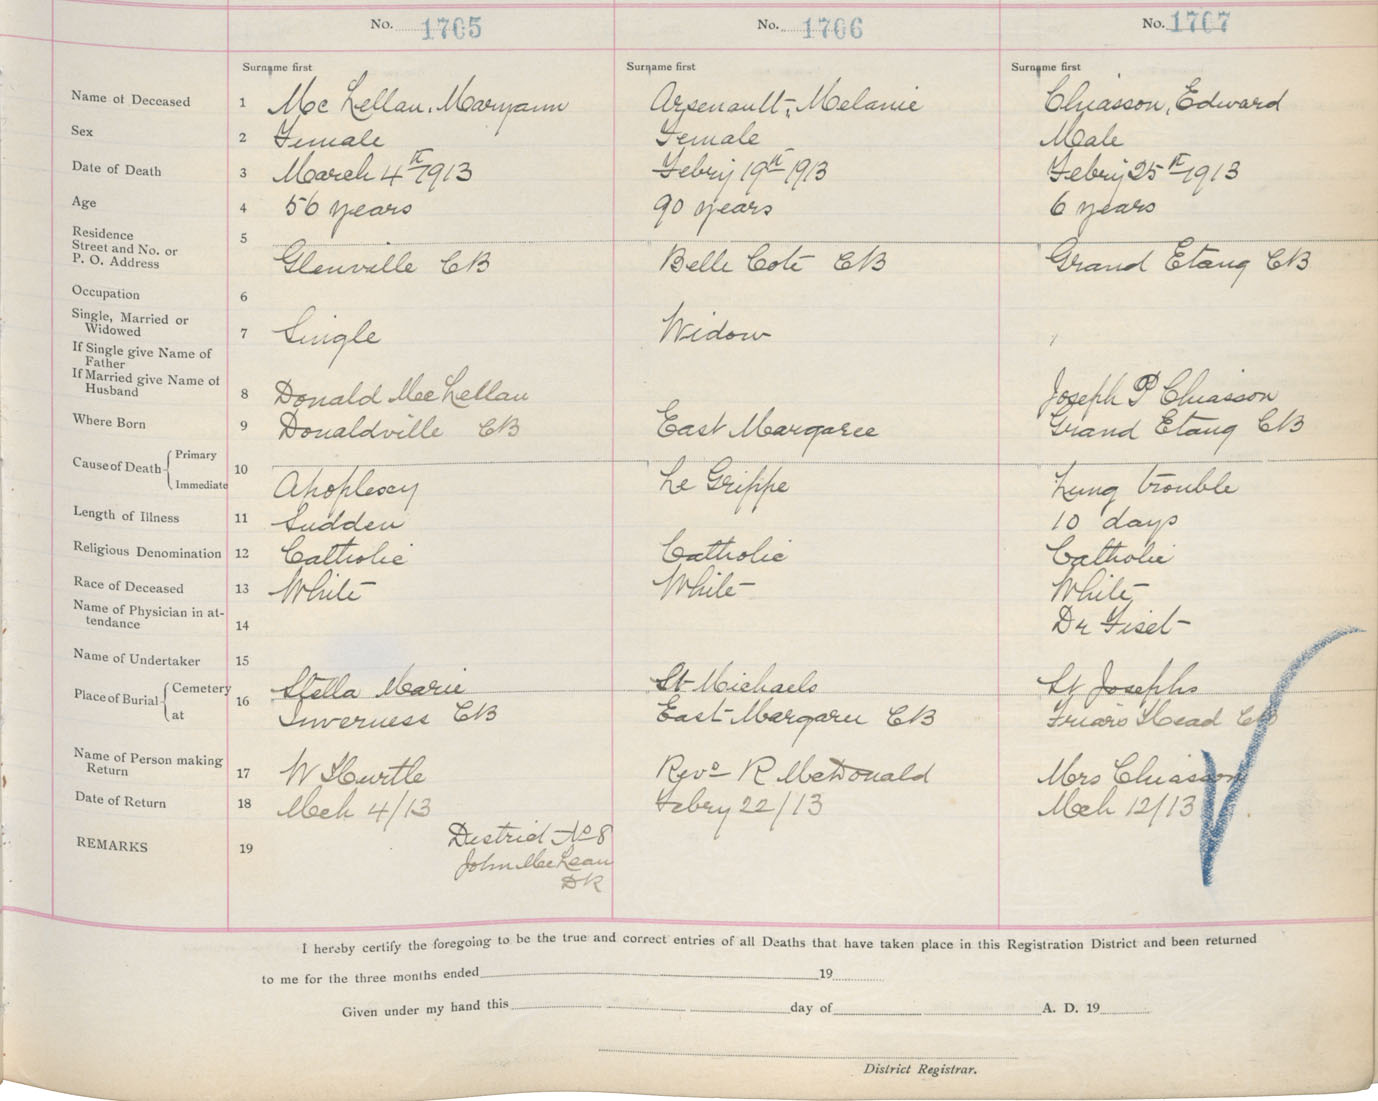 No. 1705 No. 1706 No. 1707
Surname first Surname first Surname first
Name of Deceased 1 Mc Lellan, Maryann Arsenault, Melanie Chiasson, Edward
Sex 2 Female Female Male
Date of Death 3 March 4th 1913 Febry 19th 1913 Febry 25th 1913
Age 4 56 years 90 years 6 years
Residence
Street and No. or
P. O. Address 5 Glenville CB Belle Cote CB Grand Etang CB
Occupation 6
Single, Married or
Widowed 7 Single Widow
If Single give Name of
Father
If Married give Name of
Husband 8 Donald MacLellan Joseph P Chiasson
Where Born 9 Donaldville CB East Margaree Grand Etang CB
Cause of Death Primary
Immediate 10 Apoplexy Le Grippe Lung trouble
Length of Illness 11 Sudden 10 days
Religious Denomination 12 Catholic Catholic Catholic
Race of Deceased 13 White White White
Name of Physician in at-
tendance 14 Dr Fiset
Name of Undertaker 15
Place of Burial Cemetery 16 Stella Marie St Michaels St Josephs
at Inverness CB East Margaree CB Friars Head CB
Name of Person making
Return 17 W Hurtle Revd R McDonald Mrs Chiasson
Date of Return 18 Mch 4/13 Febry 22/13 Mch 12/13
REMARKS 19 District No 8
John MacLean
DR
I hereby certify the foregoing to be the true and correct entries of all Deaths that have taken place in this Registration District and been returned
to me for the three months ended 19
Given under my hand this day of A. D. 19
District Registrar.